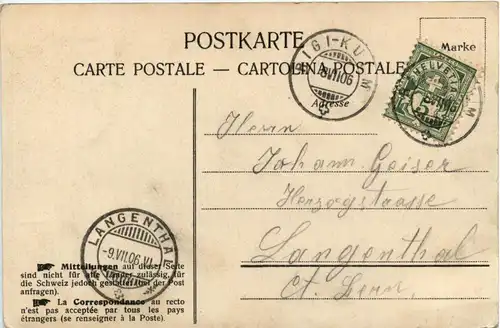 POSTKARTE
Marke
CARTE POSTALE — CARTOLINA POSTALE
RIGI-KULM
8.VII.06
HELVETIA
Adresse
Herrn
Johann Geiser
Herzogstrasse
Langenthal
Ct. Bern.
LANGENTHAL
-9.VII.06.VI
Mitteilungen auf dieser Seite
sind nicht für alle Länder zulässig, für
die Schweiz jedoch gestattet (der Post
anfragen).
La Correspondance au recto
n'est pas acceptée par tous les pays
étrangers (se renseigner à la Poste).